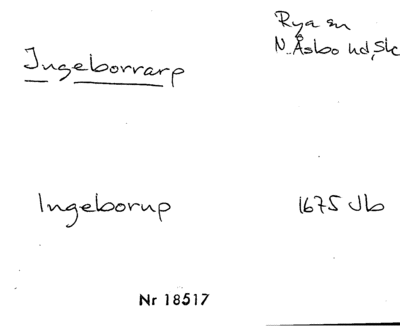 Rya sn
Ingeborrarp N. Åsbo hd, Sk
Ingeborup 1675 Jb
Nr 18517